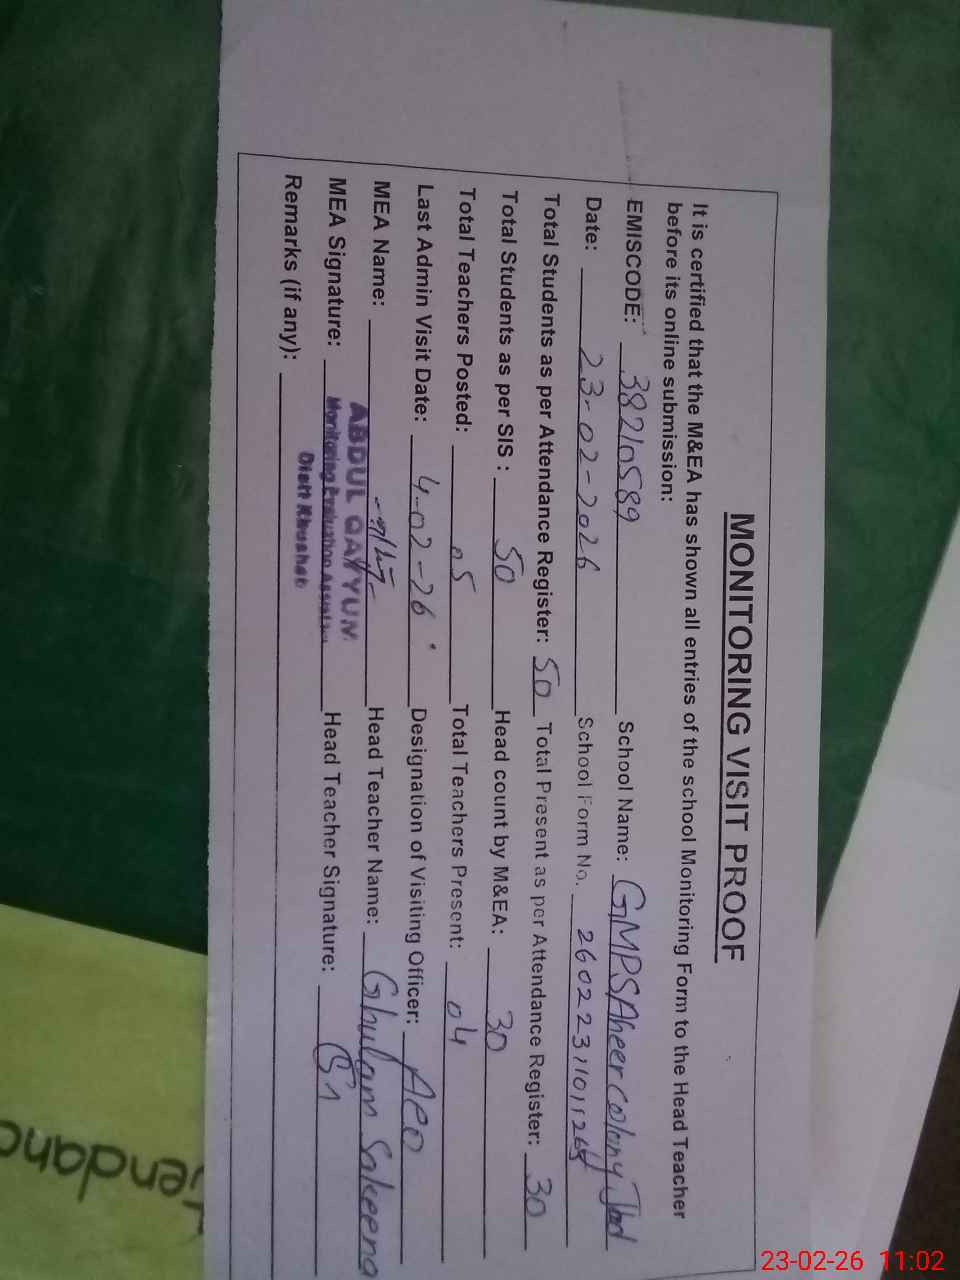 MONITORING VISIT PROOF
It is certified that the M&EA has shown all entries of the school Monitoring Form to the Head Teacher
before its online submission:
EMISCODE: 38210589 School Name: GMPS Aheer colony Jbd
Date: 23-02-2026 School Form No. 26022311011265
Total Students as per Attendance Register: 50 Total Present as per Attendance Register: 30
Total Students as per SIS : 50 Head count by M&EA: 30
Total Teachers Posted: 05 Total Teachers Present: 04
Last Admin Visit Date: 4-02-26 Designation of Visiting Officer: AEO
MEA Name: Head Teacher Name: Ghulam Sakeena
ABDUL QAYYUM
MEA Signature: Head Teacher Signature:
Monitoring Evaluation Assistant
Distt Khushab
Remarks (if any):
endanc
23-02-26 11:02